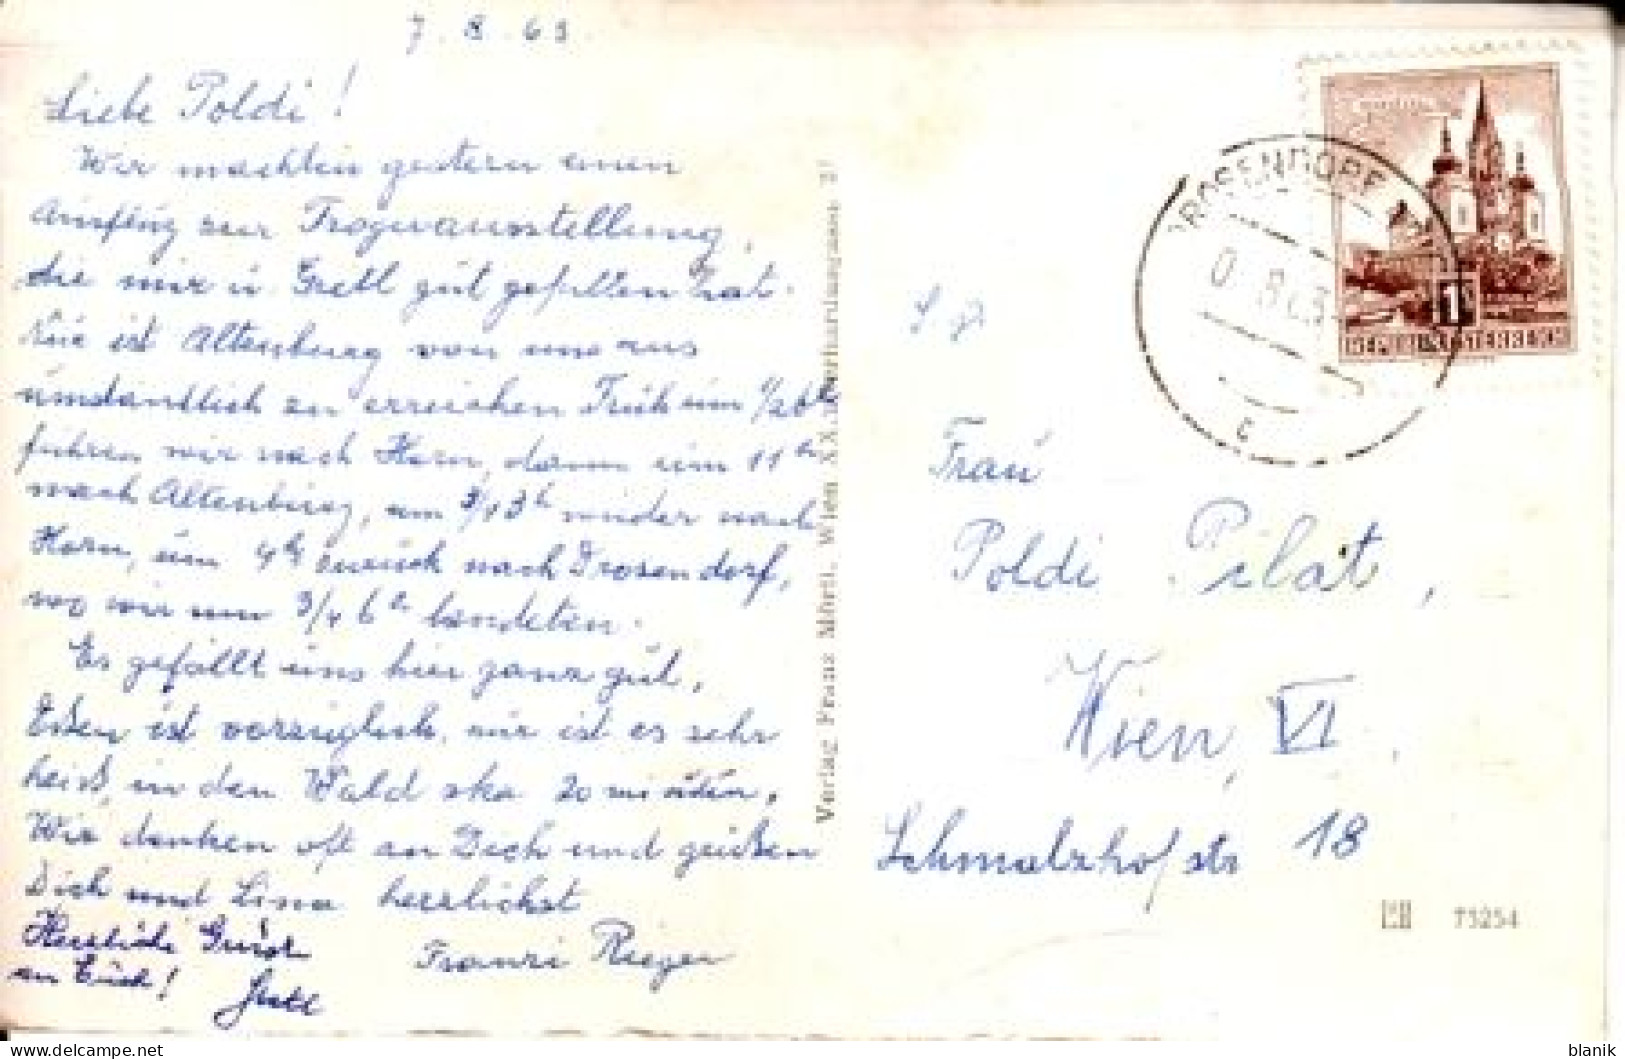 7. 8. 63.
Liebe Poldi!
Wir machten gestern einen
Ausflug zur Trogerausstellung,
die mir u. Gretl gut gefallen hat.
Nur ist Altenburg von uns aus
umständlich zu erreichen Früh um 1/2 6h
fuhren wir nach Horn, dann um 11h
nach Altenburg, um 3/4 3h wieder nach
Horn, um 4h zurück nach Drosendorf,
wo wir um 3/4 6h landeten.
Es gefällt uns hier ganz gut,
Essen ist vorzüglich, nur ist es sehr
heiß, in den Wald zka 20 minuten.
Wir denken oft an Dich und grüßen
Dich und Lina herzlichst
Franzi Rieger
Herzliche Grüße
an Euch! Gretl
Verlag Franz Mörtl, Wien XX.
DROSENDORF
8. 63
c
1S
Frau
Poldi Pilat,
Wien, VI.
Schmalzhofstr 18
73254
blanik